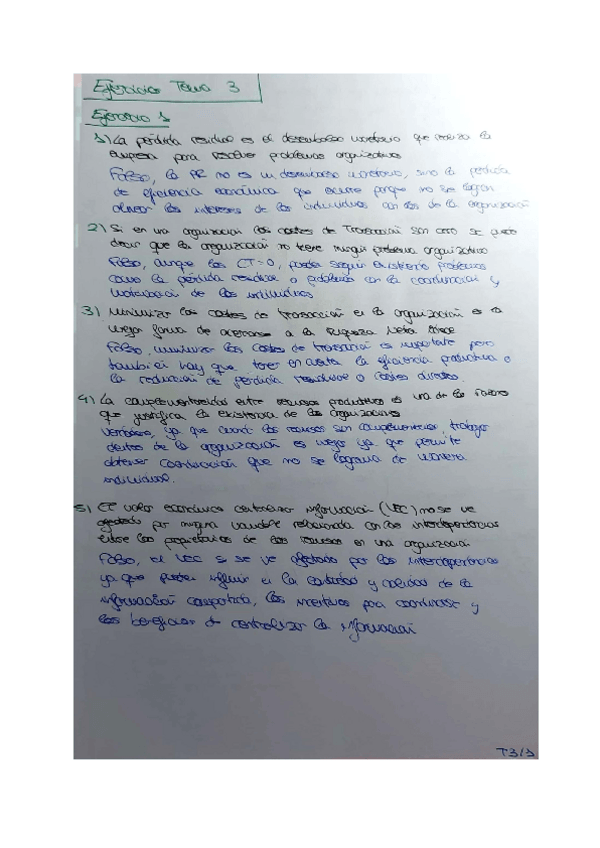 Ejercicios Tema 3
Ejercicio 1
1) La pérdida residual es el desembolso monetario que realiza la
empresa para resolver problemas organizativos
Falso, la PR no es un desembolso monetario, sino la pérdida
de eficiencia económica que ocurre porque no se logran
alinear los intereses de los individuos con los de la organización
2) Si en una organización los costes de Transacción son cero se puede
decir que la organización no tiene ningún problema organizativo
Falso, aunque los CT=0, puede seguir existiendo problemas
como la pérdida residual o problemas con la coordinación y
motivación de los individuos
3) Minimizar los costes de transacción en la organización es la
mejor forma de acercarse a la Riqueza Neta
Falso, minimizar los costes de transacción es importante pero
también hay que tener en cuenta la eficiencia productiva o
la reducción de pérdida residual o costes directos.
4) La complementariedad entre recursos productivos es una de las razones
que justifica la existencia de las organizaciones
Verdadero, ya que cuando los recursos son complementarios, trabajar
dentro de la organización es mejor ya que permite
obtener coordinación que no se lograría de manera
individual.
5) El valor económico centralizar información (VEC) no se ve
afectado por ninguna variable relacionada con las interdependencias
entre los propietarios de los recursos en una organización
Falso, el VEC si se ve afectado por las interdependencias
ya que pueden influir en la cantidad y calidad de la
información compartida, los incentivos para coordinarse y
los beneficios de centralizar la información
T3/1